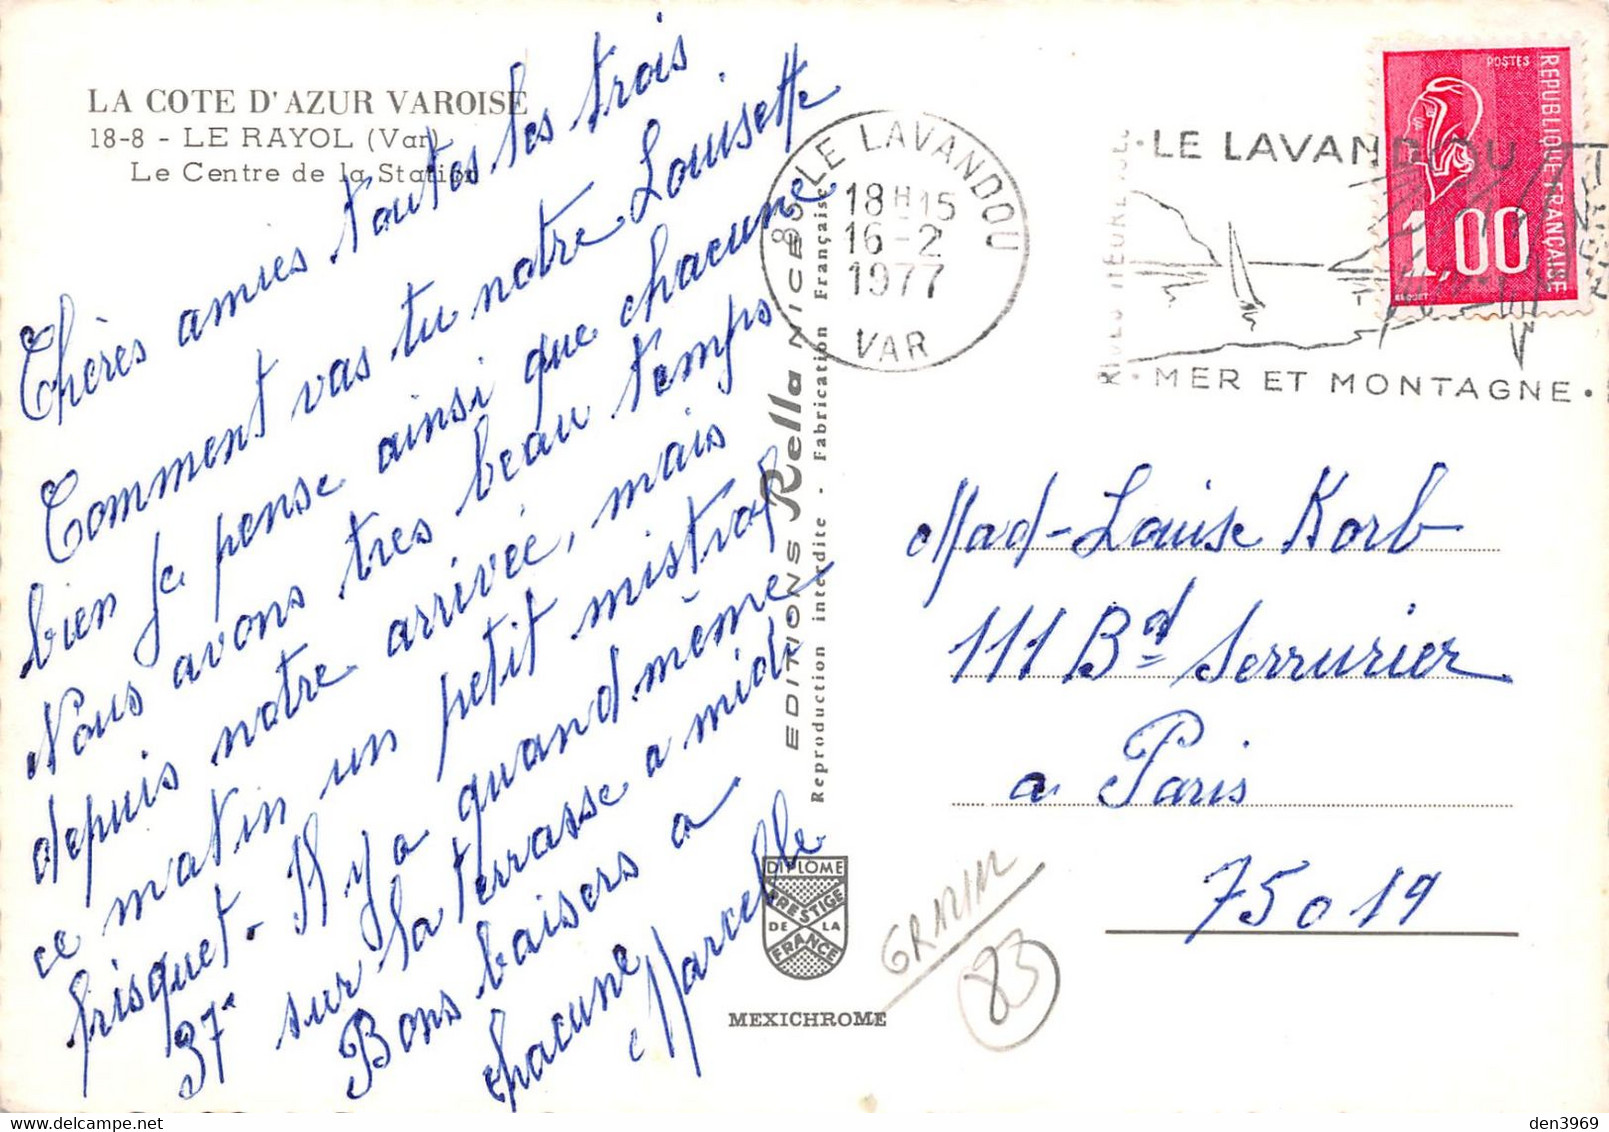 LA COTE D'AZUR VAROISE
18-8 - LE RAYOL (Var)
Le Centre de la Station
Chères amies toutes les trois.
Comment vas tu notre Louisette
bien je pense ainsi que chacune
Nous avons tres beau temps
depuis notre arrivée, mais
ce matin un petit mistral
frisquet - Il y a quand même
37° sur la terrasse a midi.
Bons baisers a
chacune
Marcelle
EDITIONS Rella NICE
Reproduction interdite - Fabrication Française
DIPLOME
PRESTIGE
DE LA
FRANCE
MEXICHROME
83 LE LAVANDOU
18H15
16-2
1977
VAR
· LE LAVANDOU
· MER ET MONTAGNE ·
POSTES
REPUBLIQUE FRANÇAISE
1,00
BEQUET
Mad-Louise Korb
111 Bd Serrurier
a Paris
75019
83
den3969